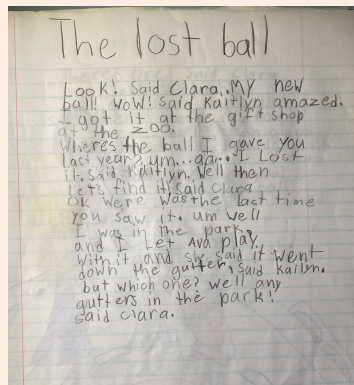 The lost ball
Look! Said Clara,. MY new
ball! WoW! said Kaitlyn amazed.
I got it at the gift shop
at the zoo.
Where's the ball I gave you
last year? um...aa.. I Lost
it. Said Kaitlyn. Well then
Let's find it, said Clara
Ok were was the last time
you saw it. um well
I was in the park
and I Let Ava play.
with it and she said it went
down the gutter, said Kailyn.
but which one? well any
gutters in the park!
said clara.